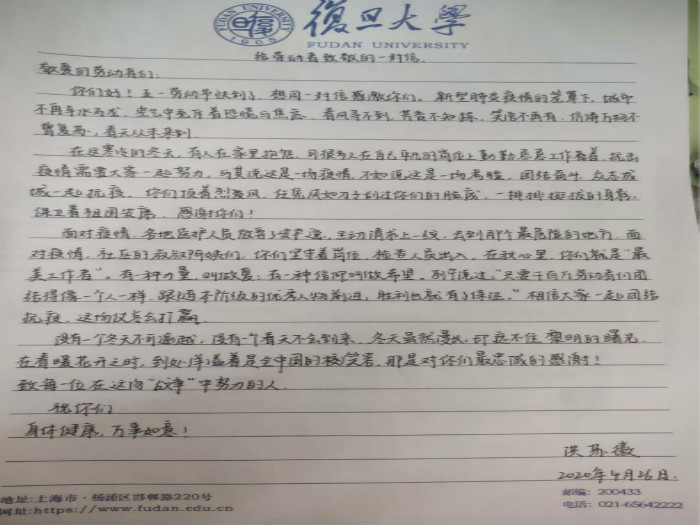 FUDAN UNIVERSITY
1905
復旦大學
FUDAN UNIVERSITY
给劳动者致敬的一封信.
敬爱的劳动者们:
你们好！五一劳动节快到了，想用一封信感激你们。新型肺炎疫情的笼罩下，城市
不再车水马龙，空气中充斥着恐慌与焦虑，看风寻不到，芳香不知踪，笑语不再有，仿佛万物不
曾复苏，春天从未来到.
在这寒冷的冬天，有人在家里抱怨，可很多人在自己平凡的岗位上勤勤恳恳工作着，抗击
疫情需要大家一起努力，与其说这是一场疫情，不如说这是一场考验，团结奋斗，众志成
城一起抗疫，你们顶着烈寒风，任凭风如刀子划过你们的脸庞，一排排挺拔的身影，
保卫着祖国安康，感谢你们！
面对疫情，各地医护人员放弃了安逸，主动请求上一线，去到那个最危险的地方，面
对疫情，社区的叔叔阿姨们，你们坚守着岗位，检查人员出入，在我心里，你们就是“最
美工作者”，有一种力量，叫做爱；有一种信仰叫做希望。列宁说过，“只要千百万劳动者们团
结得像一个人一样，跟随本阶级的优秀人物前进，胜利也就有了保证。”相信大家一起团结
抗疫，这场仗总会打赢
没有一个冬天不可逾越，没有一个春天不会到来，冬天虽然漫长，却挡不住黎明的曙光，
在春暖花开之时，到处洋溢着是全中国的欢笑容，那是对你们最忠诚的感谢！
致每一位在这场“战争”中努力的人
祝你们
身体健康，万事如意！
洪苏徽
2020年4月26日.
地址:上海市·杨浦区邯郸路220号
邮编: 200433
网址:https://www.fudan.edu.cn
电话: 021-65642222